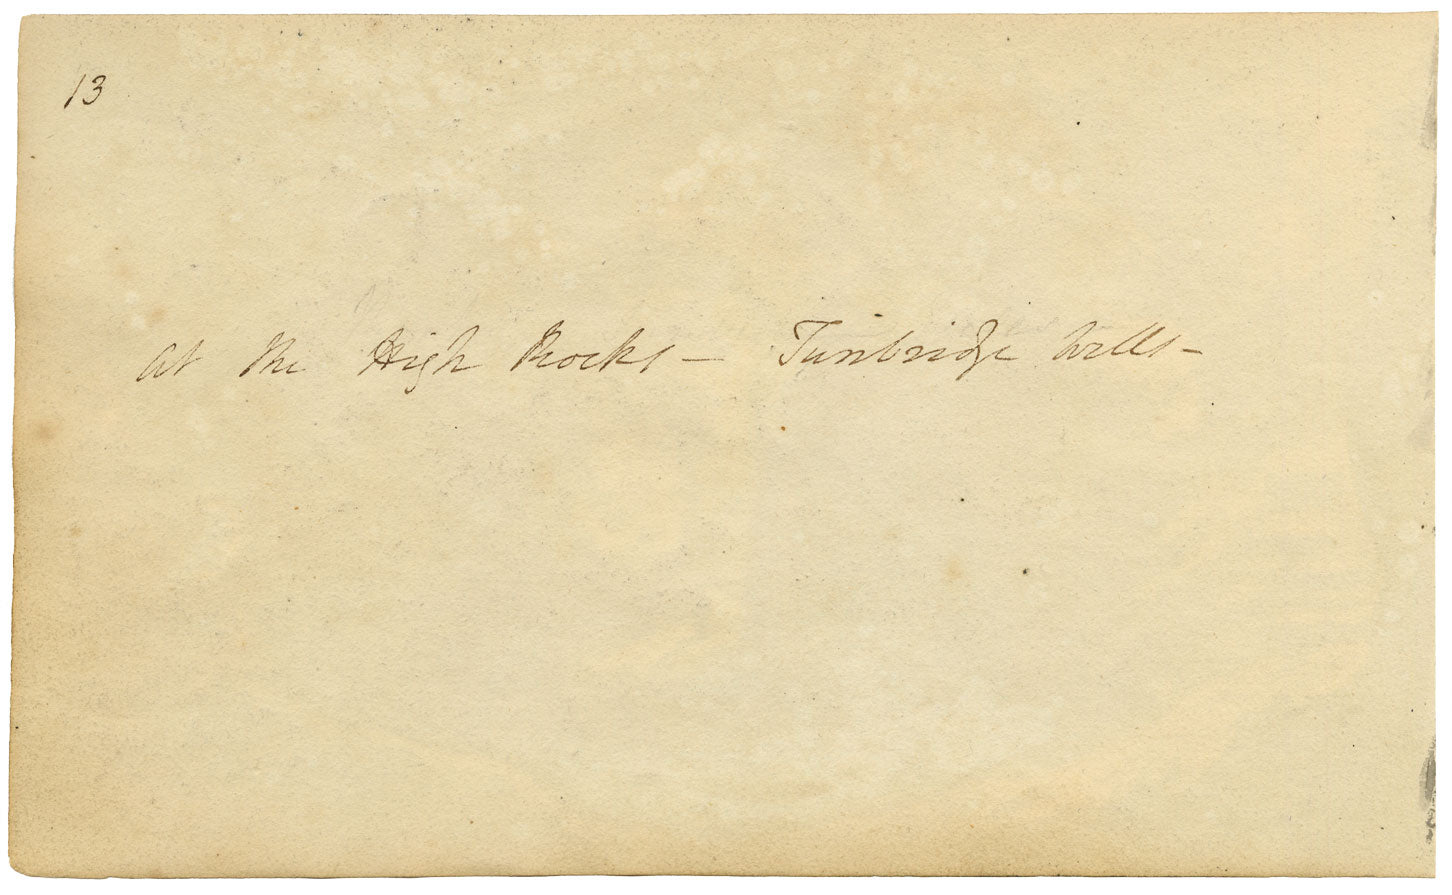 13
At the High Rocks – Tunbridge Wells –